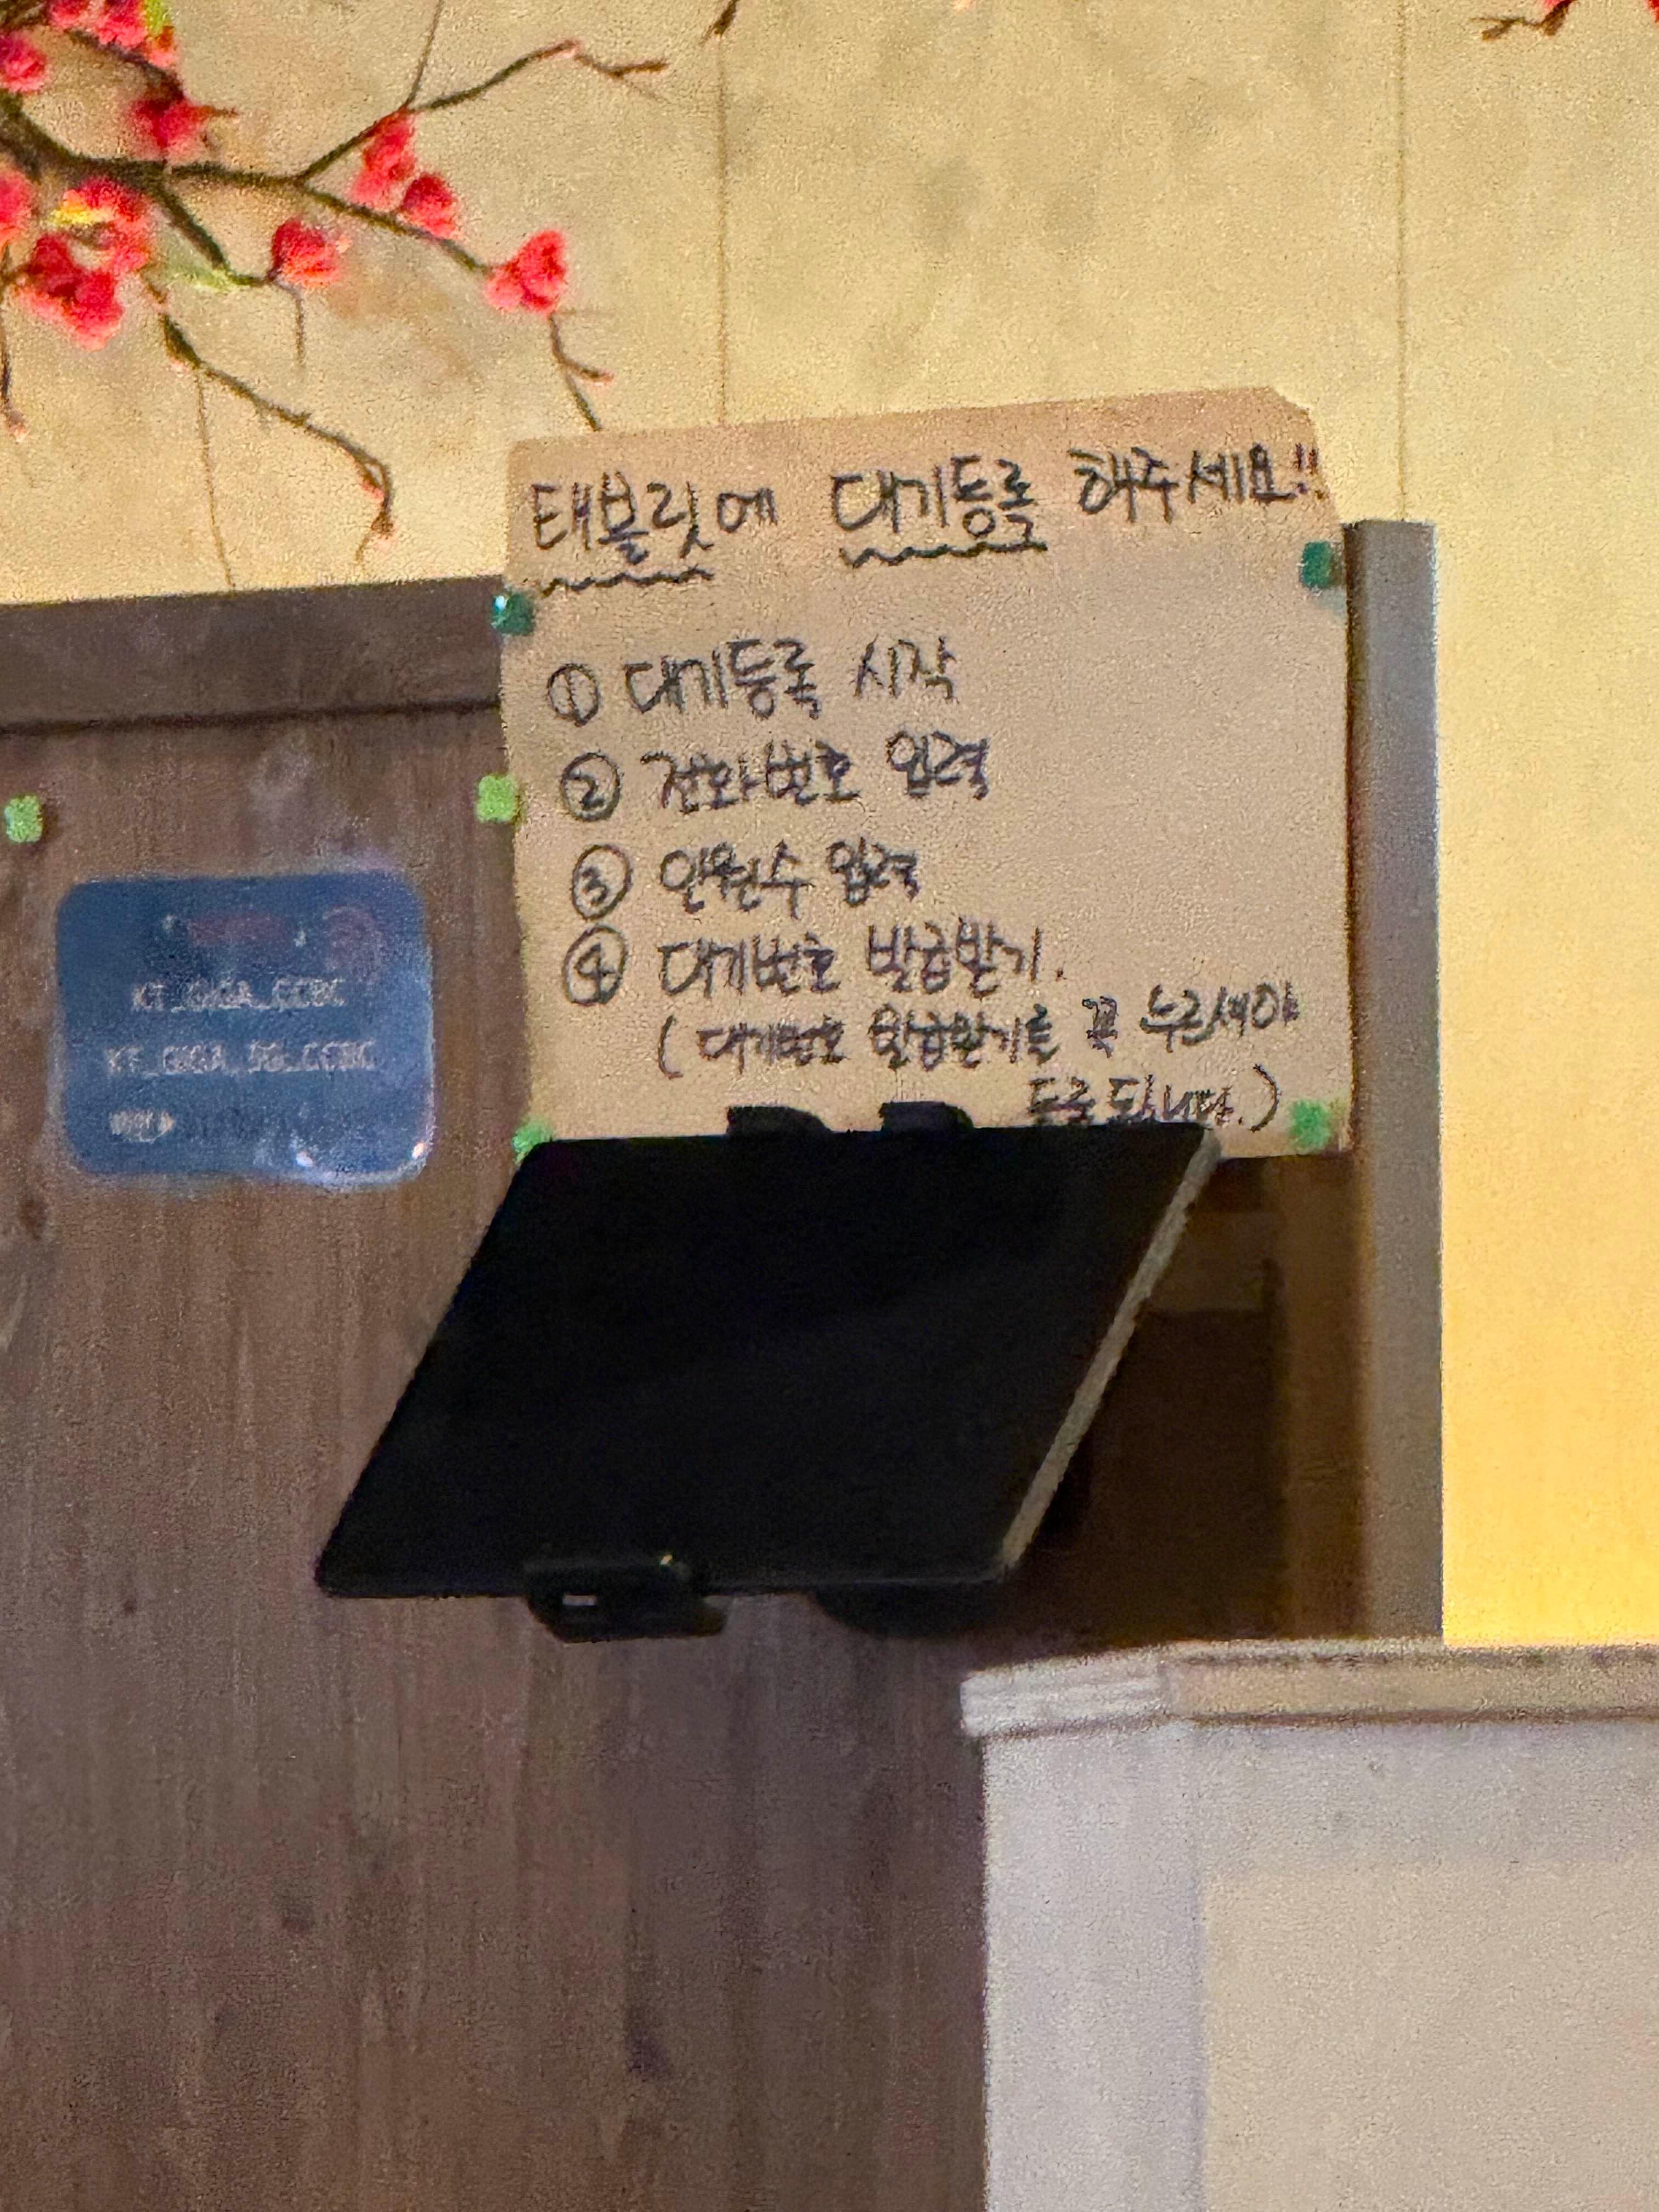 태블릿에 대기등록 해주세요!!
① 대기등록 시작
② 전화번호 입력
③ 인원수 입력
④ 대기번호 발급받기.
( 대기번호 발급받기를 꼭 누르셔야
등록 됩니다.)
KT_GiGA_CCBC
KT_GiGA_5G_CCBC